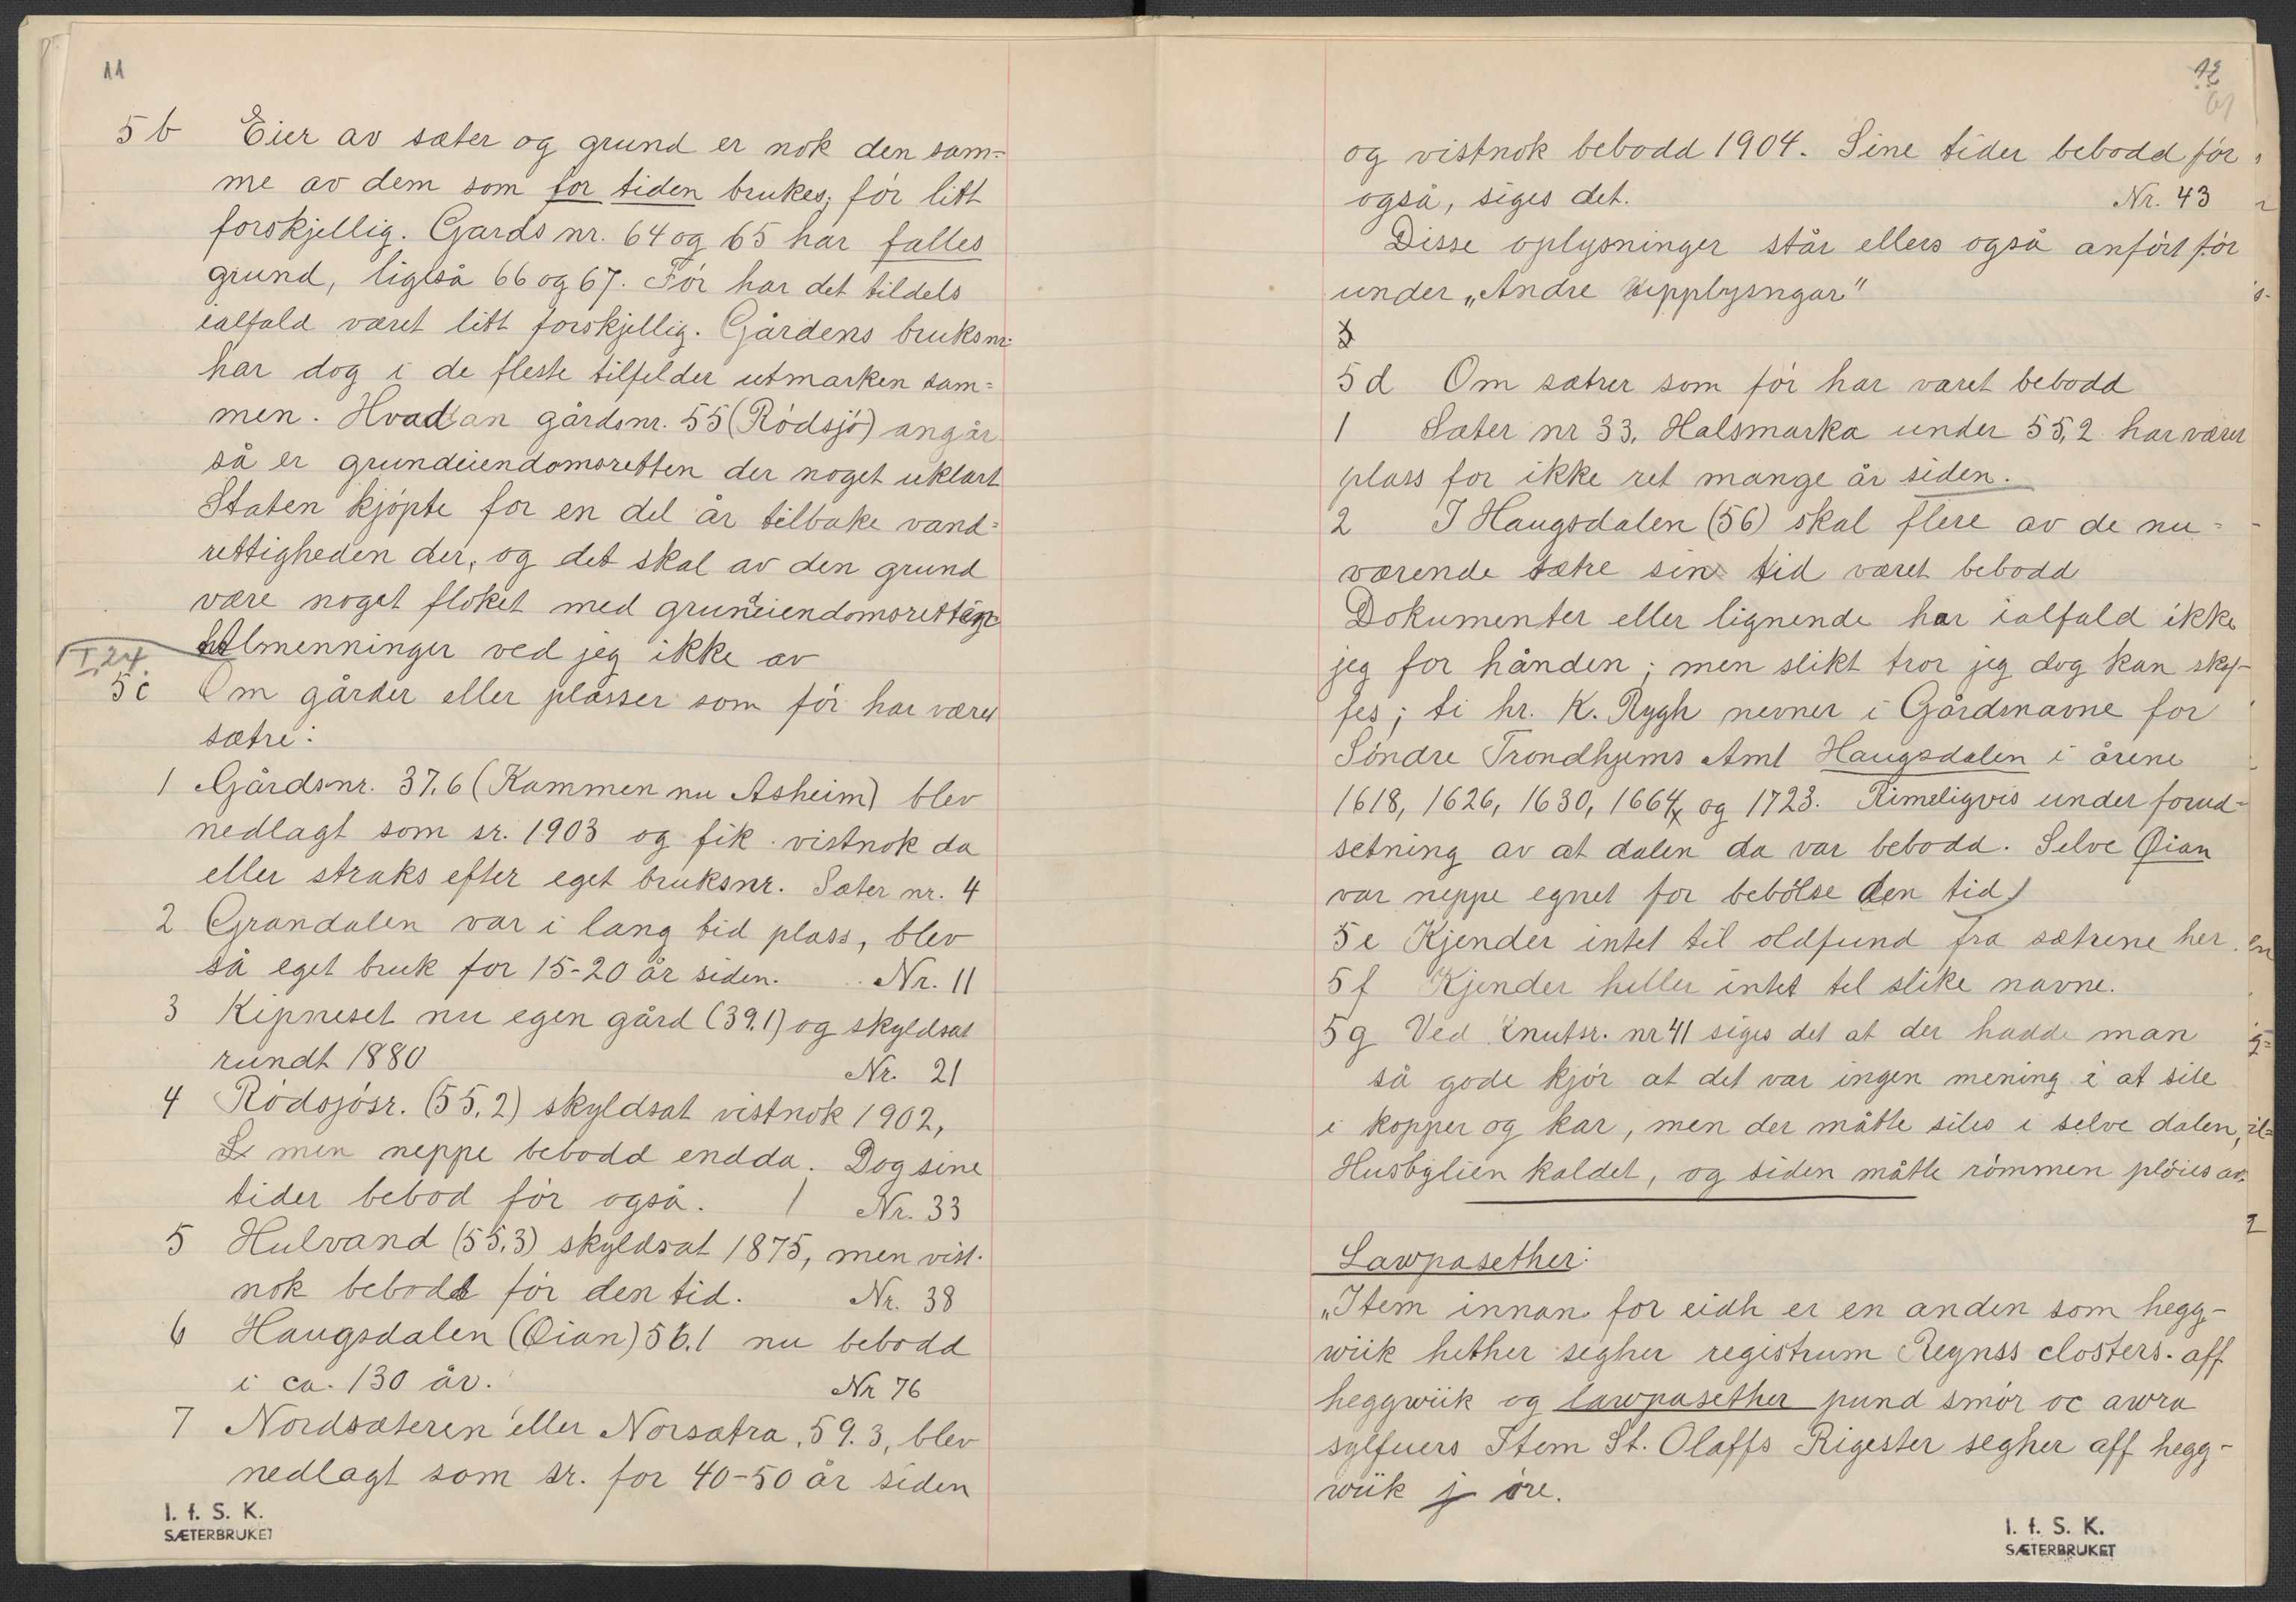 11
5 b Eier av sæter og grund er nok den sam=
me av dem som for tiden brukes; før litt
forskjellig. Gards nr. 64 og 65 har fælles
grund, ligeså 66 og 67. Før har det tildels
ialfald været litt forskjellig. Gårdens bruksnr.
har dog i de fleste tilfelder utmarken sam=
men. Hvad an gårdsnr. 55 (Rødsjø) angår
så er grundeiendomsretten der noget uklart
Staten kjøpte for en del år tilbake vand=
rettigheden der, og det skal av den grund
være noget floket med grundeiendomsretten
Almenninger ved jeg ikke av
I 24.
5 c Om gårder eller plasser som før har været
sætre:
1 Gårdsnr. 37.6 (Kammen nu Åsheim) blev
nedlagt som sr. 1903 og fik vistnok da
eller straks efter eget bruksnr. Sæter nr. 4
2 Grandalen var i lang tid plass, blev
så eget bruk for 15-20 år siden. Nr. 11
3 Kipneset nu egen gård (39.1) og skyldsat
rundt 1880 Nr. 21
4 Rødsjøsr. (55.2) skyldsat vistnok 1902,
men neppe bebodd endda. Dog sine
tider bebod før også. Nr. 33
5 Hulvand (55.3) skyldsat 1875, men vist-
nok bebodd før den tid. Nr. 38
6 Haugsdalen (Øian) 56.1 nu bebodd
i ca. 130 år. Nr 76
7 Nordsæteren eller Norsætra, 59.3, blev
nedlagt som sr. for 40-50 år siden
I. f. S. K.
SÆTERBRUKET
12
og vistnok bebodd 1904. Sine tider bebodd før
også, siges det. Nr. 43
Disse oplysninger står ellers også anført før
under „Andre upplysngar"
5 d Om sætrer som før har været bebodd
1 Sæter nr 33. Halsmarka under 55,2 har været
plass for ikke ret mange år siden.
2 I Haugsdalen (56) skal flere av de nu=
værende sætre sin tid været bebodd
Dokumenter eller lignende har ialfald ikke
jeg for hånden; men slikt tror jeg dog kan skaf-
fes; ti hr. K. Rygh nevner i Gårdsnavne for
Søndre Trondhjems Amt Haugsdalen i årene
1618, 1626, 1630, 1664, og 1723. Rimeligvis under forud-
setning av at dalen da var bebodd. Selve Øian
var neppe egnet for bebølse den tid
5 e Kjender intet til oldfund fra sætrene her.
5 f Kjender heller intet til slike navne.
5 g Ved Knutsr. nr 41 siges det at der hadde man
så gode kjør at det var ingen mening i at sile
i kopper og kar, men der måtte siles i selve dalen,
Husbylien kaldet, og siden måtte rømmen pløies av.
Lawpasether:
„Item innan for eidh er en anden som hegg-
wiik hether segher registrum Reynss closters. aff
heggwiik og lawpasether pund smør oc awra
sylfuers Item St. Olaffs Rigester segher aff hegg-
wiik j øre.
I. f. S. K.
SÆTERBRUKET